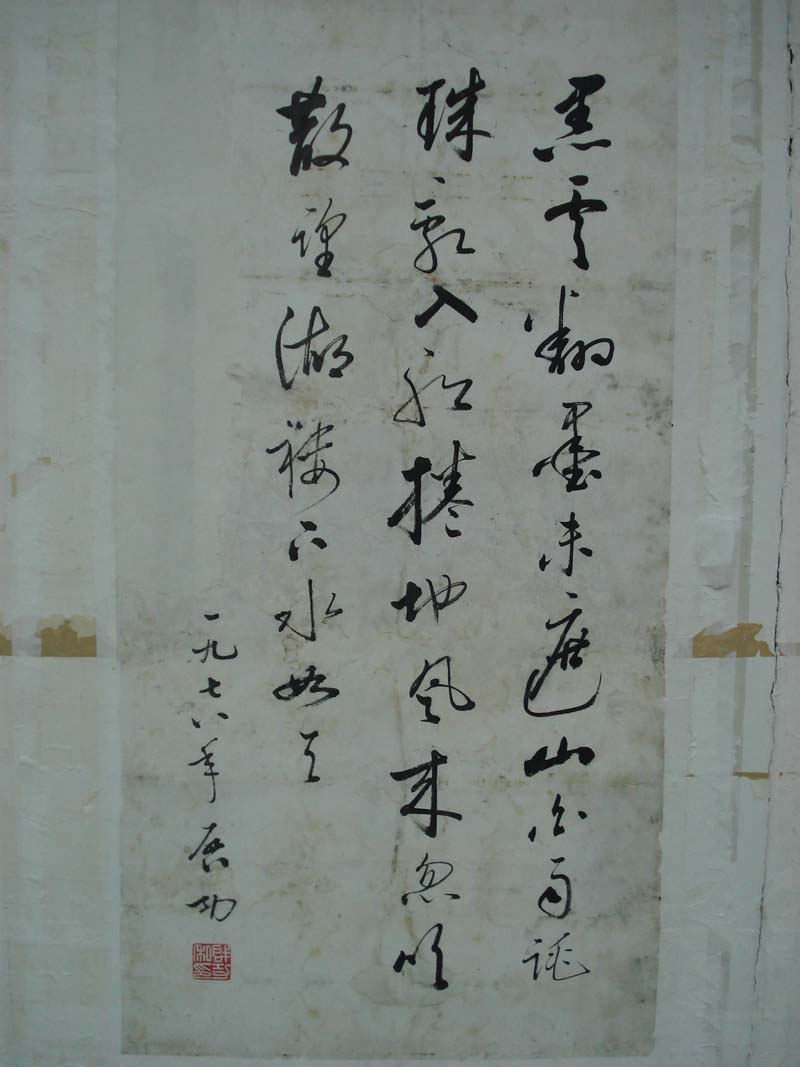 黑雲翻墨未遮山白雨跳
珠亂入船捲地風來忽吹
散望湖樓下水如天
一九七八年 启功